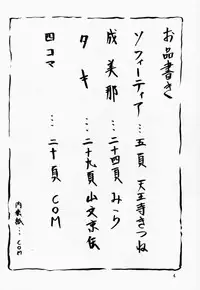 お品書き
ソフィーティア…五頁 天王寺きつね
成美那…二十四頁 みら
タキ…二十九頁 山文京伝
四コマ…二十頁 COM
内表紙…COM